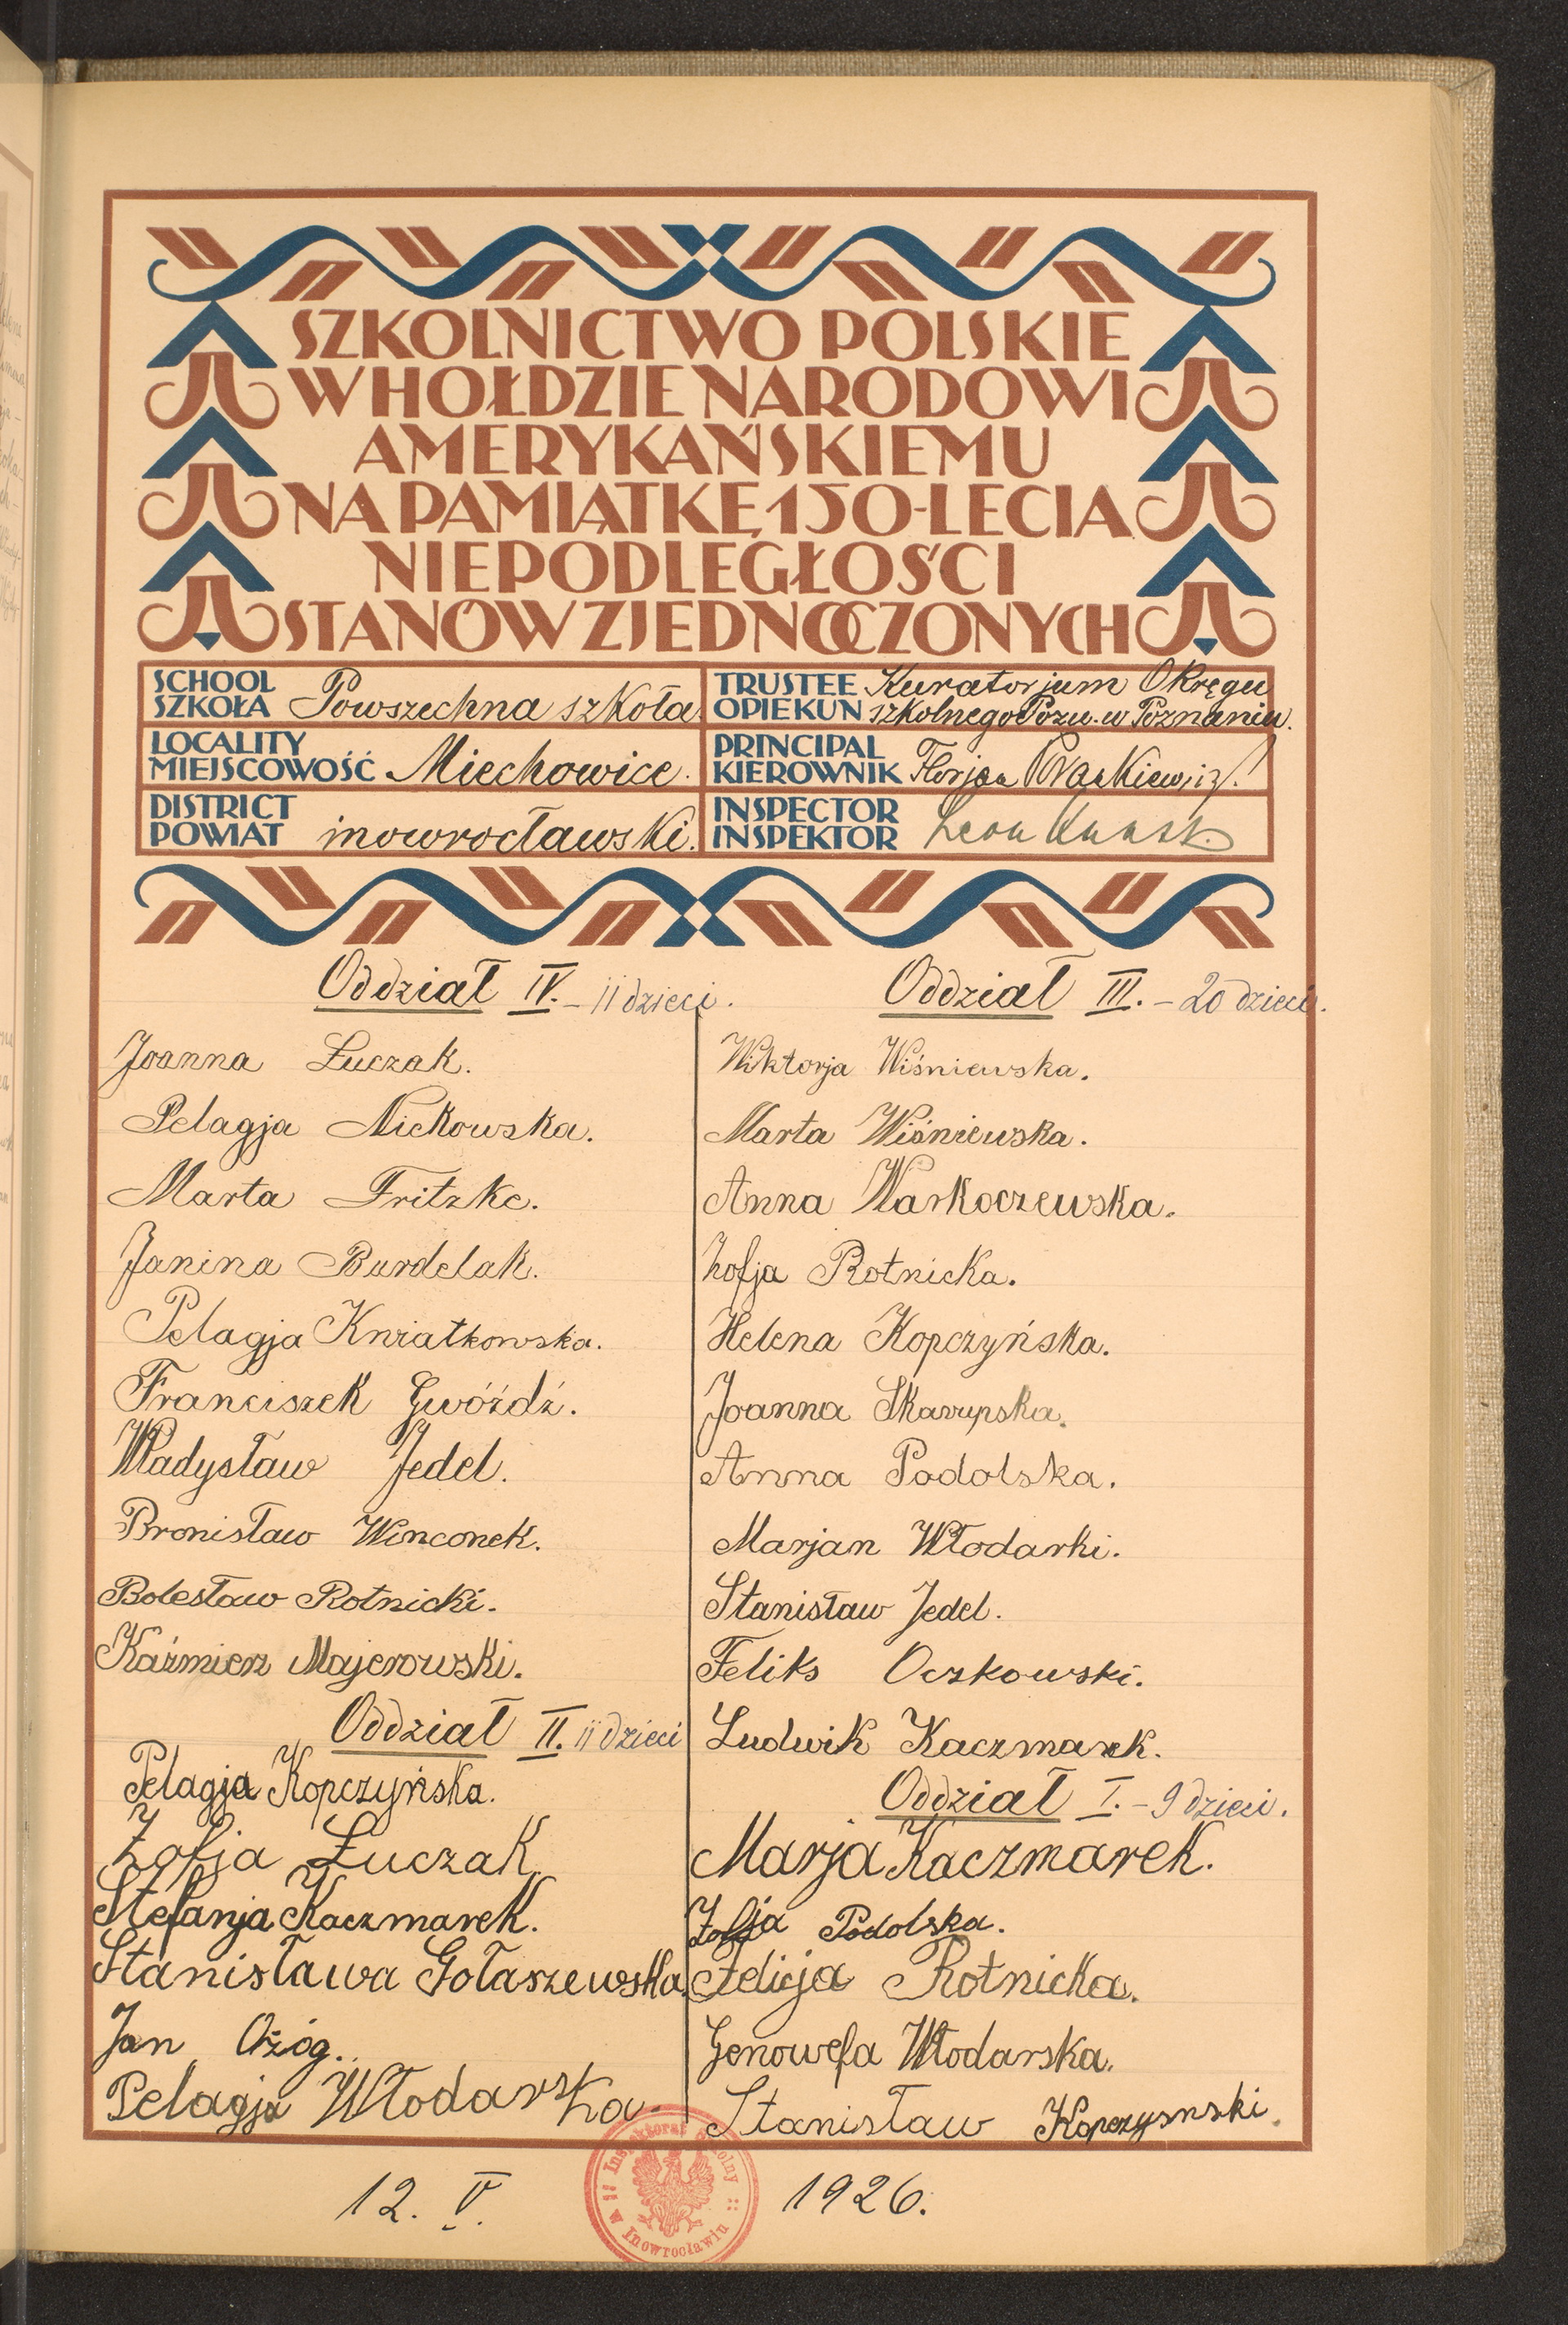 SZKOLNICTWO POLSKIE
W HOŁDZIE NARODOWI
AMERYKAŃSKIEMU
NA PAMIĄTKĘ 150-LECIA
NIEPODLEGŁOŚCI
STANÓW ZJEDNOCZONYCH
SCHOOL
SZKOŁA Powszechna szkoła.
TRUSTEE Kuratorjum Okręgu
OPIEKUN szkolnego Pozn. w Poznaniu.
LOCALITY
MIEJSCOWOŚĆ Miechowice.
PRINCIPAL
KIEROWNIK Florjan
DISTRICT
POWIAT inowrocławski.
INSPECTOR
INSPEKTOR Leon
Oddział IV. – 11 dzieci.
Joanna Łuczak.
Pelagja Nickowska.
Marta Fritzke.
Janina Burdelak.
Pelagja Kwiatkowska.
Franciszek Gwóźdź.
Władysław Jedel.
Bronisław Winconek.
Bolesław Rotnicki.
Kaźmierz Majerowski.
Oddział II. 11 dzieci
Pelagja Kopczyńska.
Zofja Łuczak.
Stefanja Kaczmarek.
Stanisława Gołaszewska.
Jan Ożóg.
Pelagja Włodarska.
Oddział III. – 20 dzieci.
Wiktorja Wiśniewska.
Marta Wiśniewska.
Anna Warkoczewska.
Zofja Rotnicka.
Helena Kopczyńska.
Joanna Skarupska.
Anna Podolska.
Marjan Włodarki.
Stanisław Jedel.
Feliks Oczkowski.
Ludwik Kaczmarek.
Oddział I. – 9 dzieci.
Marja Kaczmarek.
Zofja Podolska.
Felicja Rotnicka.
Genowefa Włodarska.
Stanisław Kopczysnski.
12. V. 1926.
Inspektorat Szkolny
w Inowrocławiu